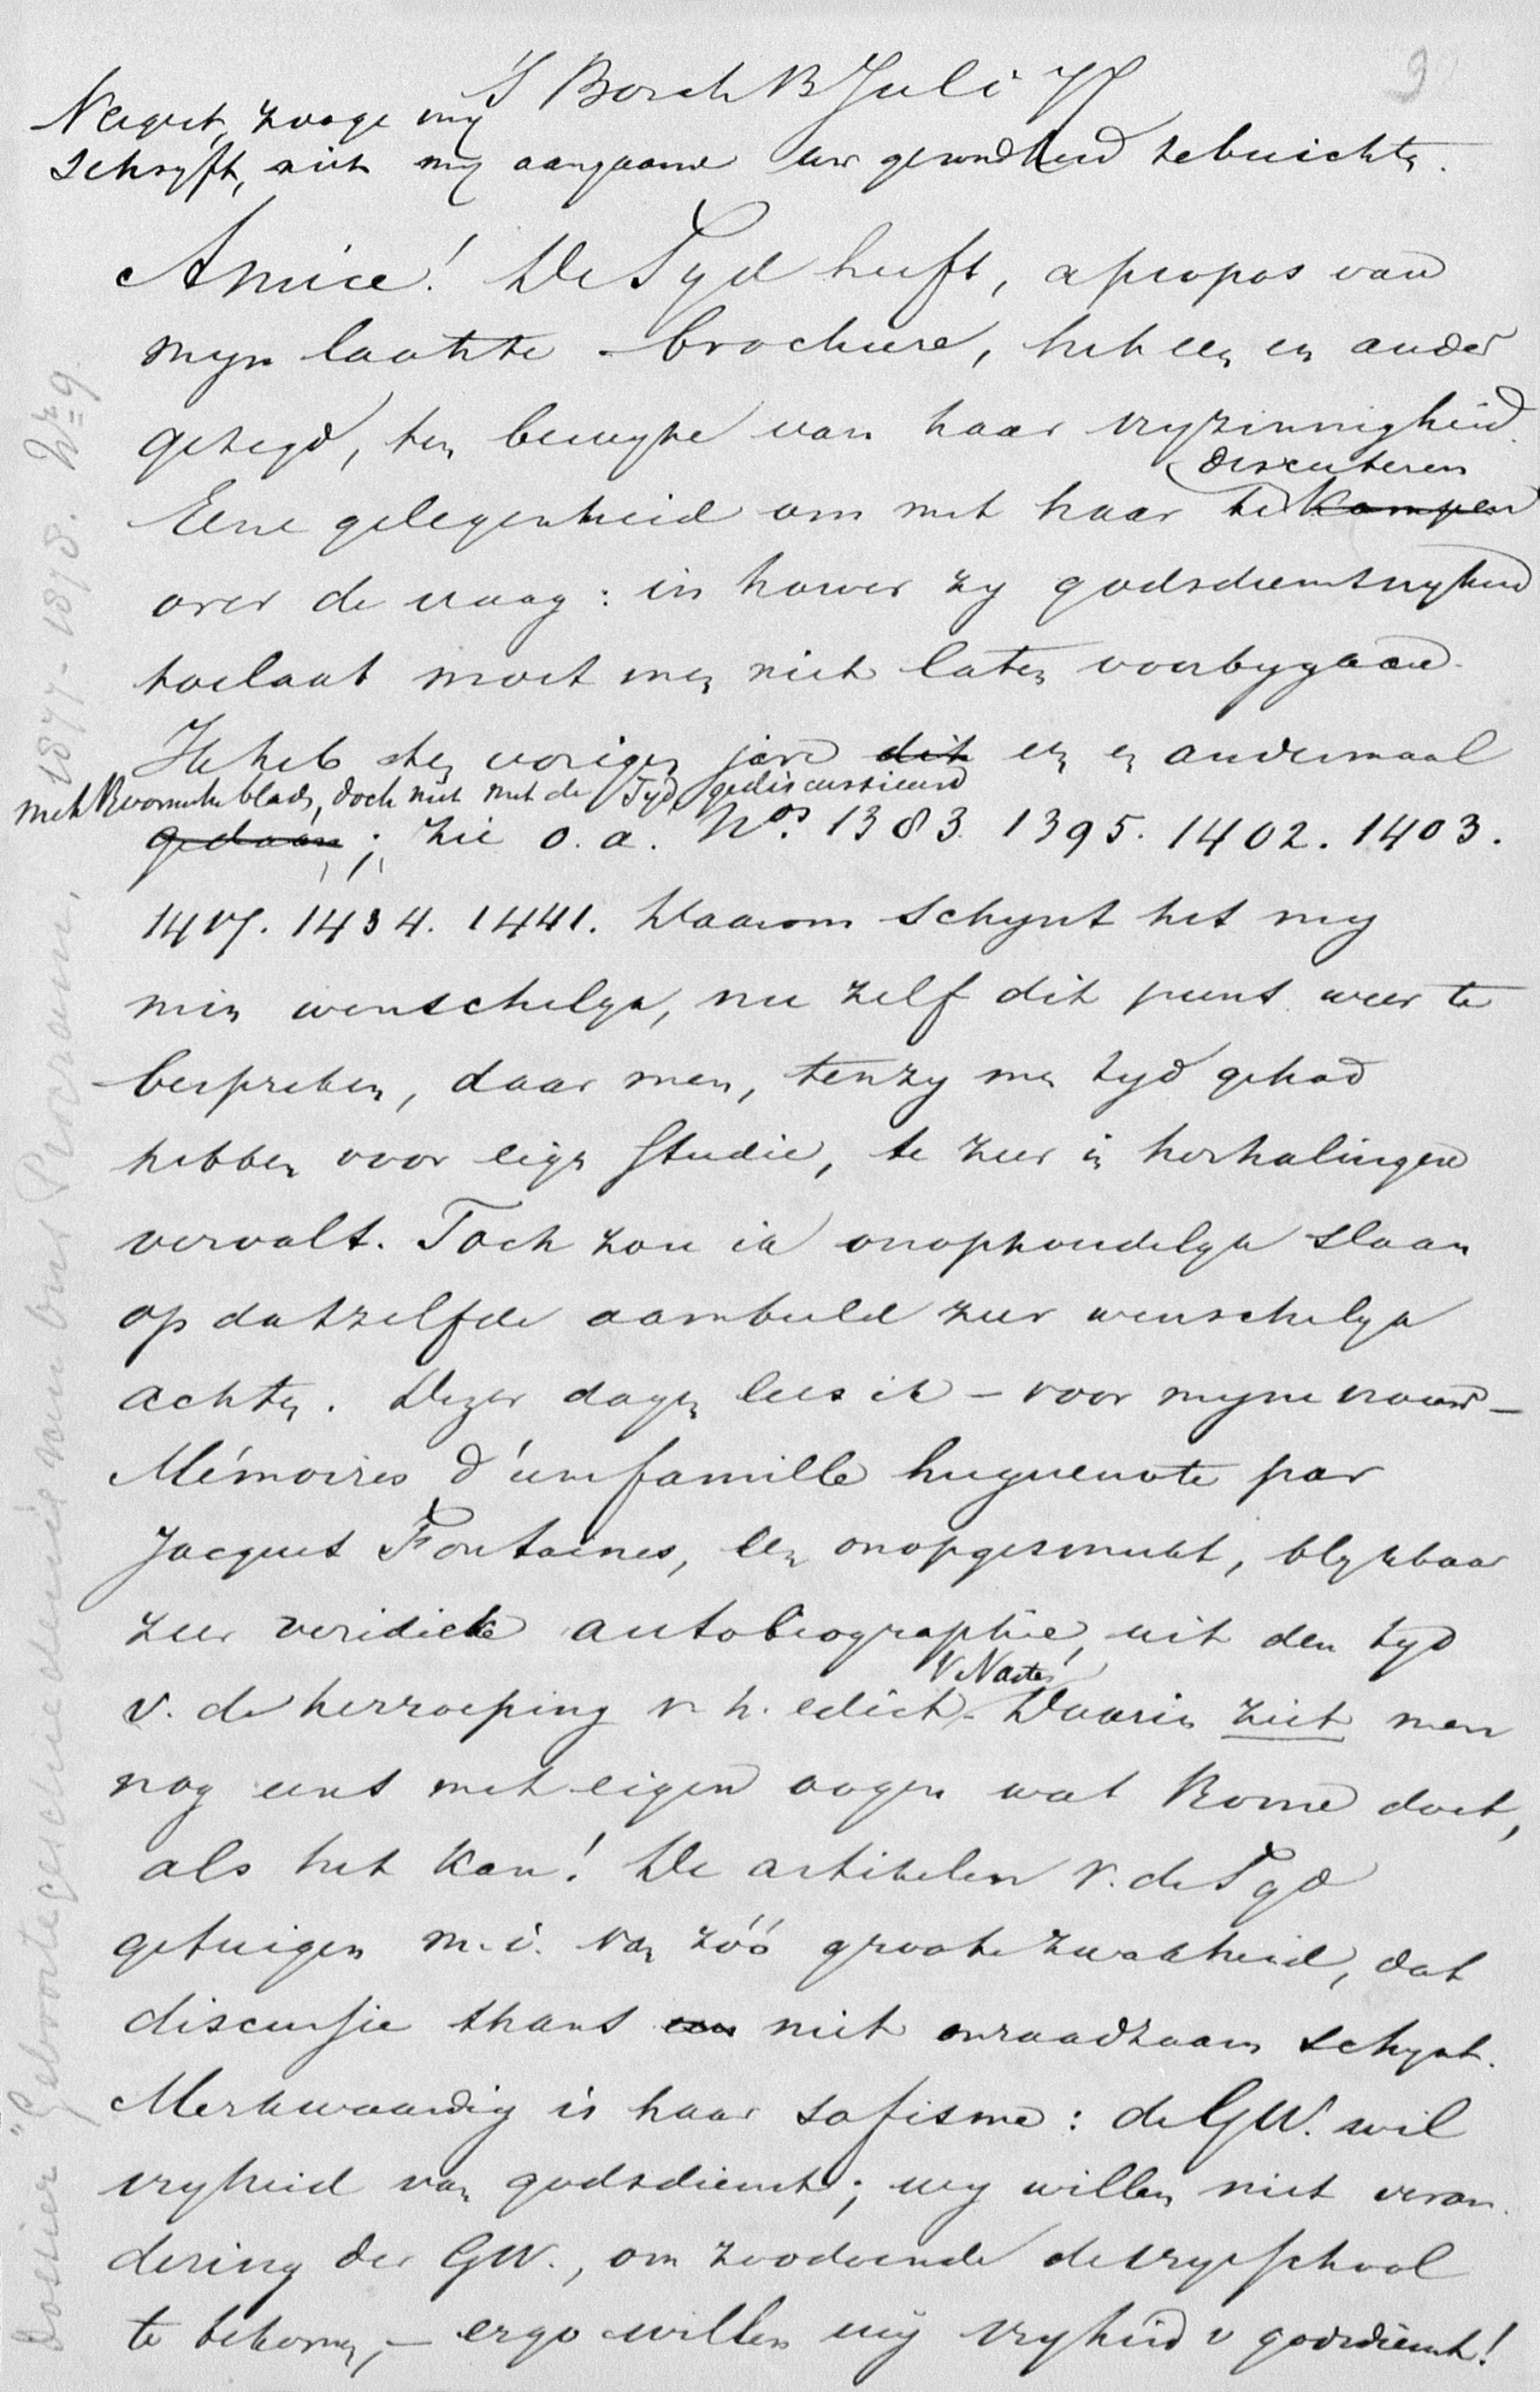 'S Bosch 13 Juli 77
9
Nequit, zooge mij
schrijft, niet mij aangaande uw gezondheid te berichten.
Amice! De Tyd heeft, apropos van
myn laatste brochure, het een en ander
gezegd, ten bewyze van haar vryzinnigheid.
discuteren
Eene gelegenheid om met haar te kampen
over de vraag: in hoever zy godsdienstvryheid
toelaat moet men niet laten voorbygaan.
Ik heb ten vorigen jare dit en en andermaal
met Roomsche bladn, doch niet met de Tyd gediscussieerd
gedaan; zie o.a. Nos. 1383. 1395. 1402. 1403.
1417. 1434. 1441. Daarom schynt het my
min wenschelyk, nu zelf dit punt weer te
bespreken, daar men, tenzy men tyd gehad
hebben voor eign studie, te zeer in herhalingen
vervalt. Toch zou ik onophoudelyk slaan
op datzelfde aambeeld zeer wenschelyk
achten. Dezer dagen lees ik – voor myne vrouw –
Mémoires d'une famille huguenote par
Jacques Fontaines, een onopgesmukt, blykbaar
zeer veridieke autobiographie, uit den tyd
v Nantes
v. de herroeping v h. edict. Daarin ziet men
nog eens met eigen oogen wat Rome doet,
als het kan! De artikelen v. de Tyd
getuigen m.i. van zóó groote zwakheid, dat
discussie thans een niet onraadzaam schynt.
Merkwaardig is haar sofisme: de GW. wil
vryheid van godsdienst; wy willen niet veran
dering der GW., om zoodoende de vrye school
te bekomen, – ergo willen wij vryheid v godsdienst!
Dossier "Geboortegeschiedenis van ons Program. 1877-1878. No 9.